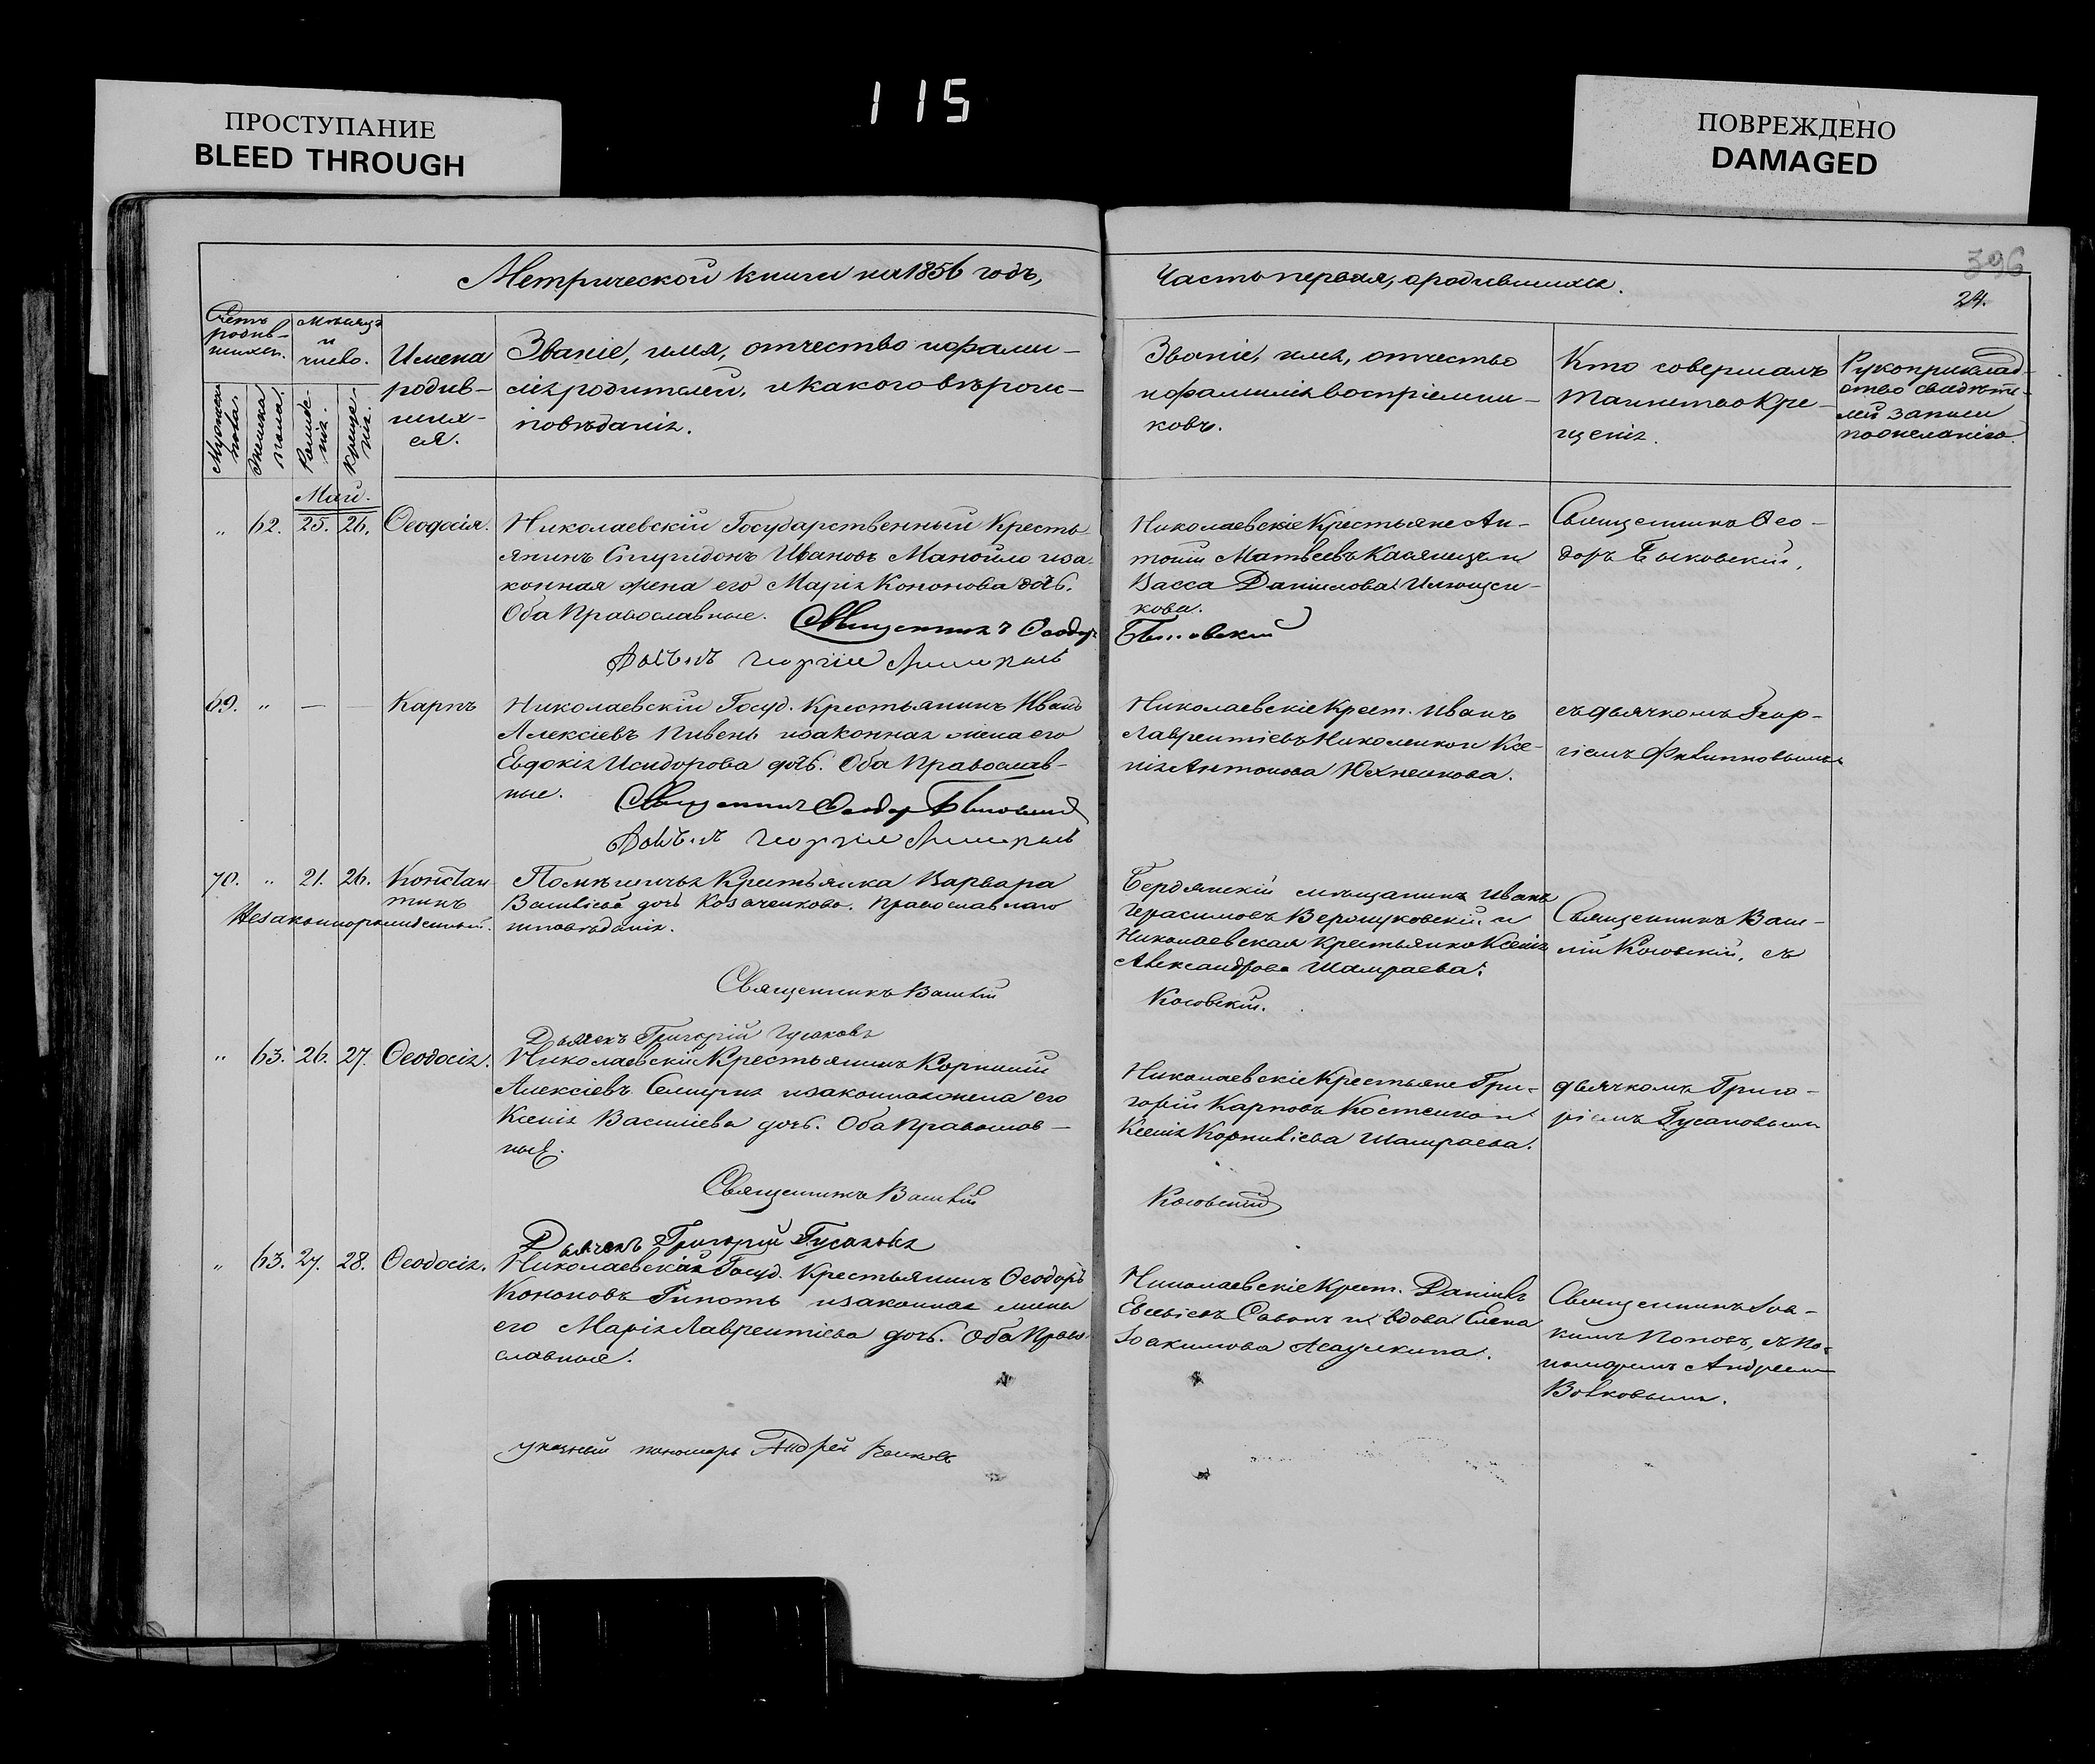 115
ПРОСТУПАНИЕ
BLEED THROUGH
ПОВРЕЖДЕНО
DAMAGED
396
24.
Метрической книги на 1856 годъ,
Часть первая, о родившихся.
Счетъ родив-
шихся.
Мужеска
пола.
Женска
пола.
Мѣсяцъ
и
число.
Рожде-
нія.
Креще-
нія.
Имена
родив-
шихъ-
ся.
Званіе, имя, отчество и фами-
лія родителей, и какого вѣроис-
повѣданія.
Званіе, имя, отчество
и фамилія воспріемни-
ковъ.
Кто совершалъ
таинство Кре-
щенія.
Рукоприклад-
ство свидѣте-
лей записи
по желанію
Май.
" 62. 25. 26. Ѳеодосія.
Николаевскій Государственный Кресть-
янинъ Спиридонъ Ивановъ Манойло и за-
конная жена его Марія Кононова дочь.
Оба Православные. Священникъ Ѳеодоръ
Николаевскіе Крестьяне Ан-
тоній Матвеевъ Касянецъ и
Васса Даніилова
кова.
Священникъ Ѳео-
доръ
69. " — — Карпъ
Николаевскій Госуд. Крестьянинъ Иванъ
Алексіевъ Пивень и законная жена его
Евдокія Исидорова дочь. Оба Православ-
ные. Священникъ Ѳеодоръ
Николаевскіе Крест. Иванъ
Лаврентіевъ Николенко и Ксе-
нія Антонова Юхненкова.
съ дьячкомъ Геор-
гіемъ Филипповымъ
70. " 21. 26. Констан
тинъ
Незаконнорожденный.
Помѣщичья Крестьянка Варвара
Василіева дочь Козаченкова. Православнаго
исповѣданія.
Священникъ Василій
Косовскій.
Дьячекъ Григорій Гусаковъ
Бердянскій мѣщанинъ Иванъ
Герасимовъ и
Николаевская Крестьянка Ксенія
Александрова Шамраева.
Священникъ Васи-
лій Косовскій, съ
" 63. 26. 27. Ѳеодосія.
Николаевскій Крестьянинъ Корнилій
Алексіевъ и законная жена его
Ксенія Василіева дочь. Оба Православ-
ные.
Священникъ Василій
Косовскій
Дьячекъ Григорій Гусаковъ
Николаевскіе Крестьяне Гри-
горій Карповъ Костенко и
Ксенія Корниліева Шамраева.
дьячкомъ Григо-
ріемъ Гусаковымъ
" 63. 27. 28. Ѳеодосія.
Николаевскій Госуд. Крестьянинъ Ѳеодоръ
Кононовъ и законная жена
его Марія Лаврентіева дочь. Оба Право-
славные.
Николаевскіе Крест. Даніилъ
Евсевіевъ и вдова Елена
Іоакимова
Священникъ Іоа-
кимъ Поповъ, съ по-
номаремъ Андреемъ
Волковымъ.
указный пономарь Андрей Волковъ